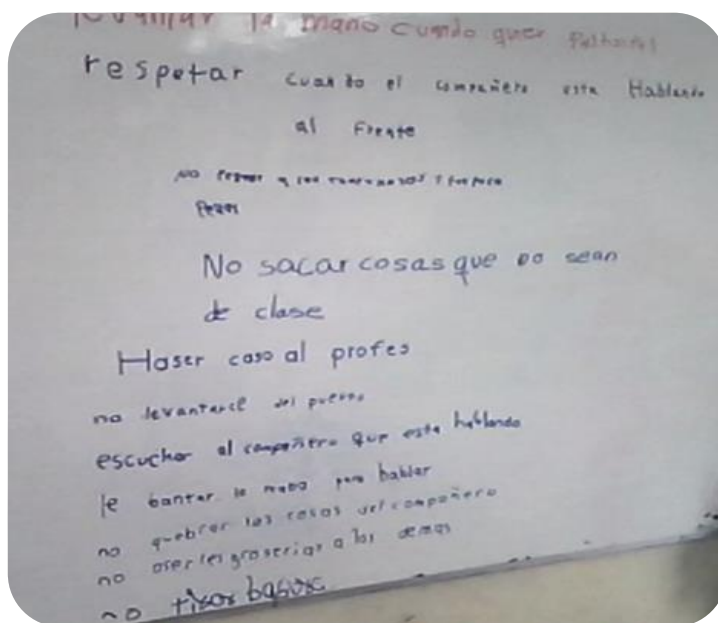 la mano cuando quer
respetar cuando el compañero esta Hablando
al Frente
No
No sacar cosas que no sean
de clase
Haser caso al profes
no levantarce del puesto
escuchar al compañero que esta hablando
le bantar la mano para hablar
no quebrar las cosas del compañero
no aserles groserias a los demas
no tirar basura